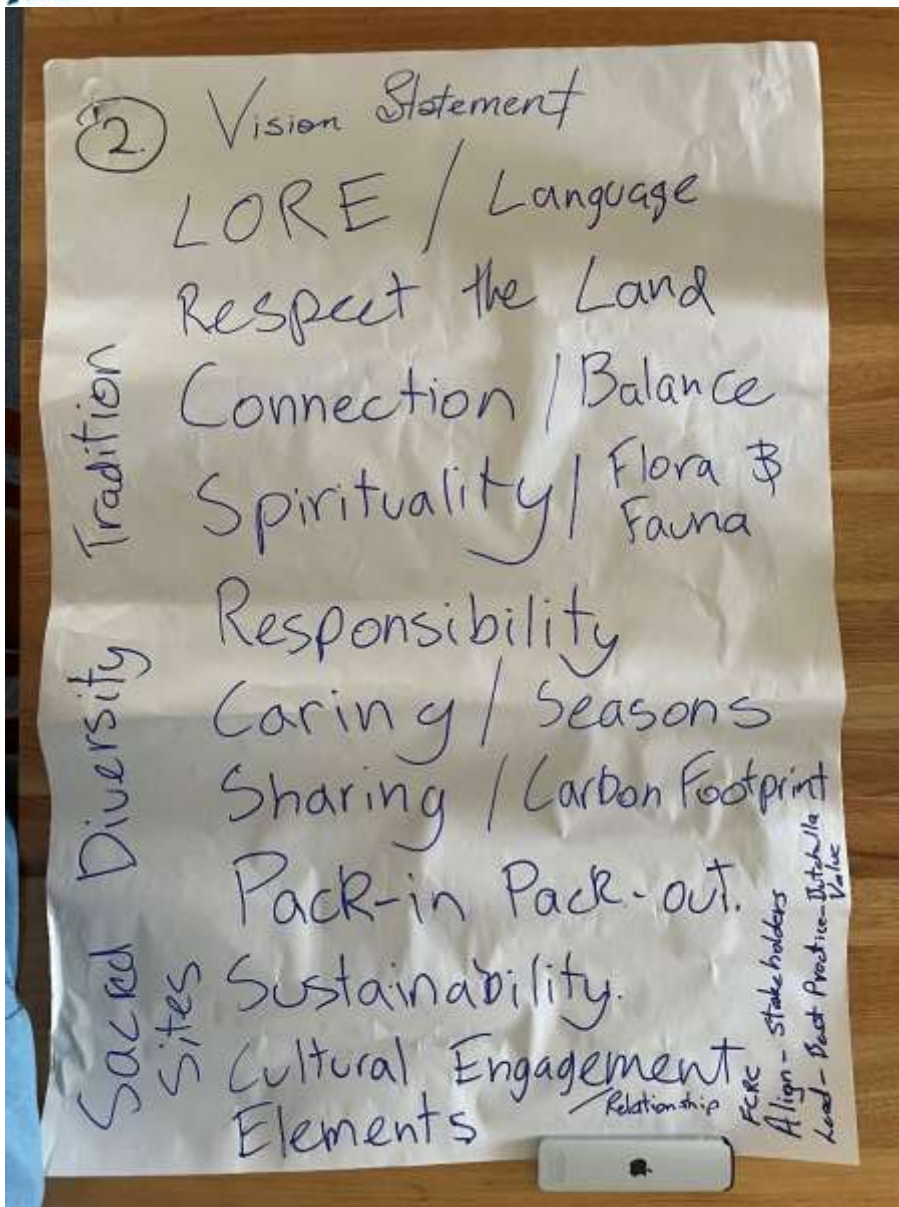 2. Vision Statement
LORE / Language
Respect the Land
Connection / Balance
Spirituality / Flora &
Fauna
Responsibility
Caring / Seasons
Sharing / Carbon Footprint
Pack-in Pack-out.
Sustainability.
Cultural Engagement
/Relationship
Elements
Tradition
Diversity
Sacred
Sites
FCRC
Align - Stakeholders
Lead - Best Practice - Butchulla
Value